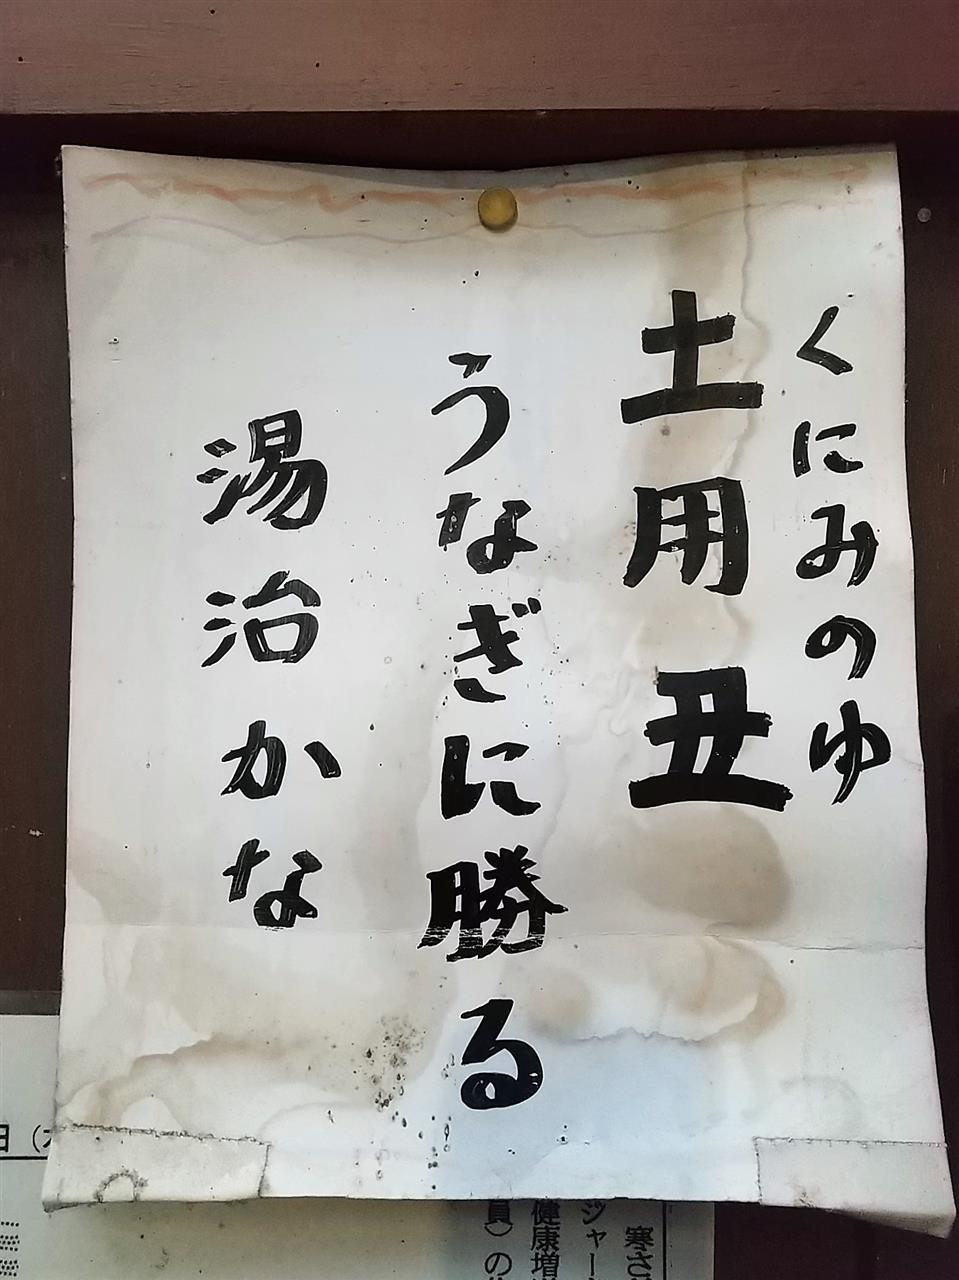 くにみのゆ
土用丑
うなぎに勝る
湯治かな
寒さ
ジャー
健康増
員）の
日（